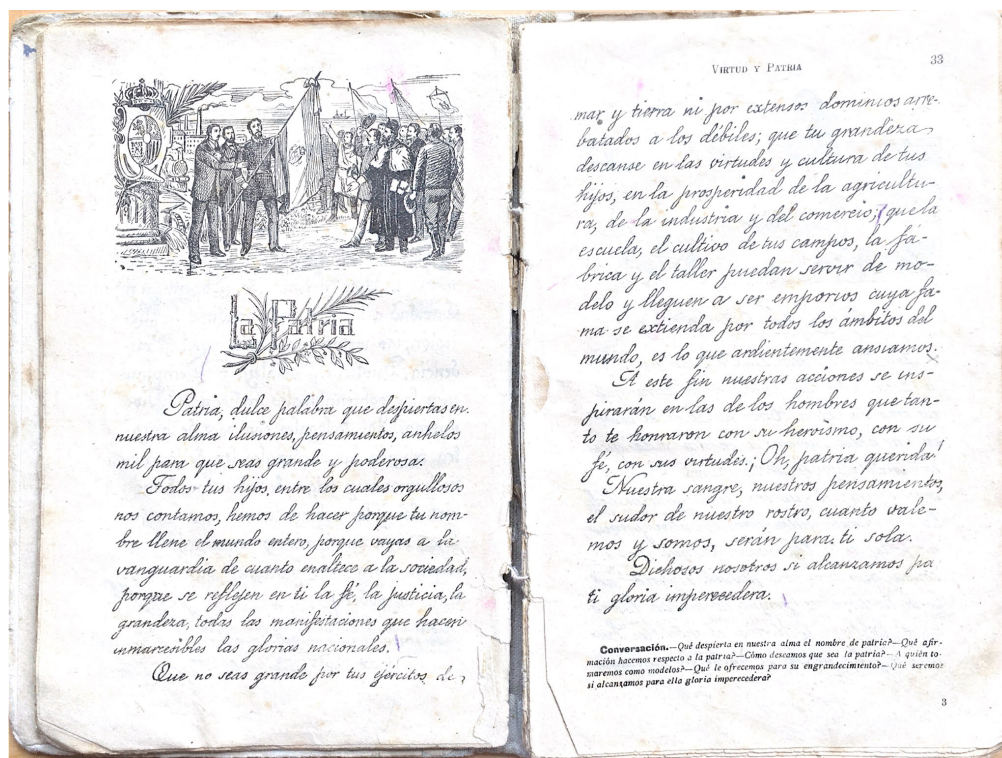 La Patria
Patria, dulce palabra que despiertas en
nuestra alma ilusiones, pensamientos, anhelos
mil para que seas grande y poderosa.
Todos tus hijos, entre los cuales orgullosos
nos contamos, hemos de hacer porque tu nom-
bre llene el mundo entero, porque vayas a la
vanguardia de cuanto enaltece a la sociedad,
porque se reflejen en ti la fé, la justicia, la
grandeza, todas las manifestaciones que hacen
inmarcesibles las glorias nacionales.
Que no seas grande por tus ejércitos de
VIRTUD Y PATRIA
33
mar y tierra ni por extensos dominios arre-
batados a los débiles; que tu grandeza
descanse en las virtudes y cultura de tus
hijos, en la prosperidad de la agricultu-
ra, de la industria y del comercio; que la
escuela, el cultivo de tus campos, la fá-
brica y el taller puedan servir de mo-
delo y lleguen a ser emporios cuya fa-
ma se extienda por todos los ámbitos del
mundo, es lo que ardientemente ansiamos.
A este fin nuestras acciones se ins-
pirarán en las de los hombres que tan-
to te honraron con su heroísmo, con su
fé, con sus virtudes. ¡Oh, patria querida!
Nuestra sangre, nuestros pensamientos,
el sudor de nuestro rostro, cuanto vale-
mos y somos, serán para ti sola.
Dichosos nosotros si alcanzamos pa
ti gloria imperecedera.
Conversación.—Qué despierta en nuestra alma el nombre de patria?—Qué afir-
mación hacemos respecto a la patria?—Cómo deseamos que sea la patria?—A quién to-
maremos como modelos?—Qué le ofrecemos para su engrandecimiento?—Qué seremos
si alcanzamos para ella gloria imperecedera?
3